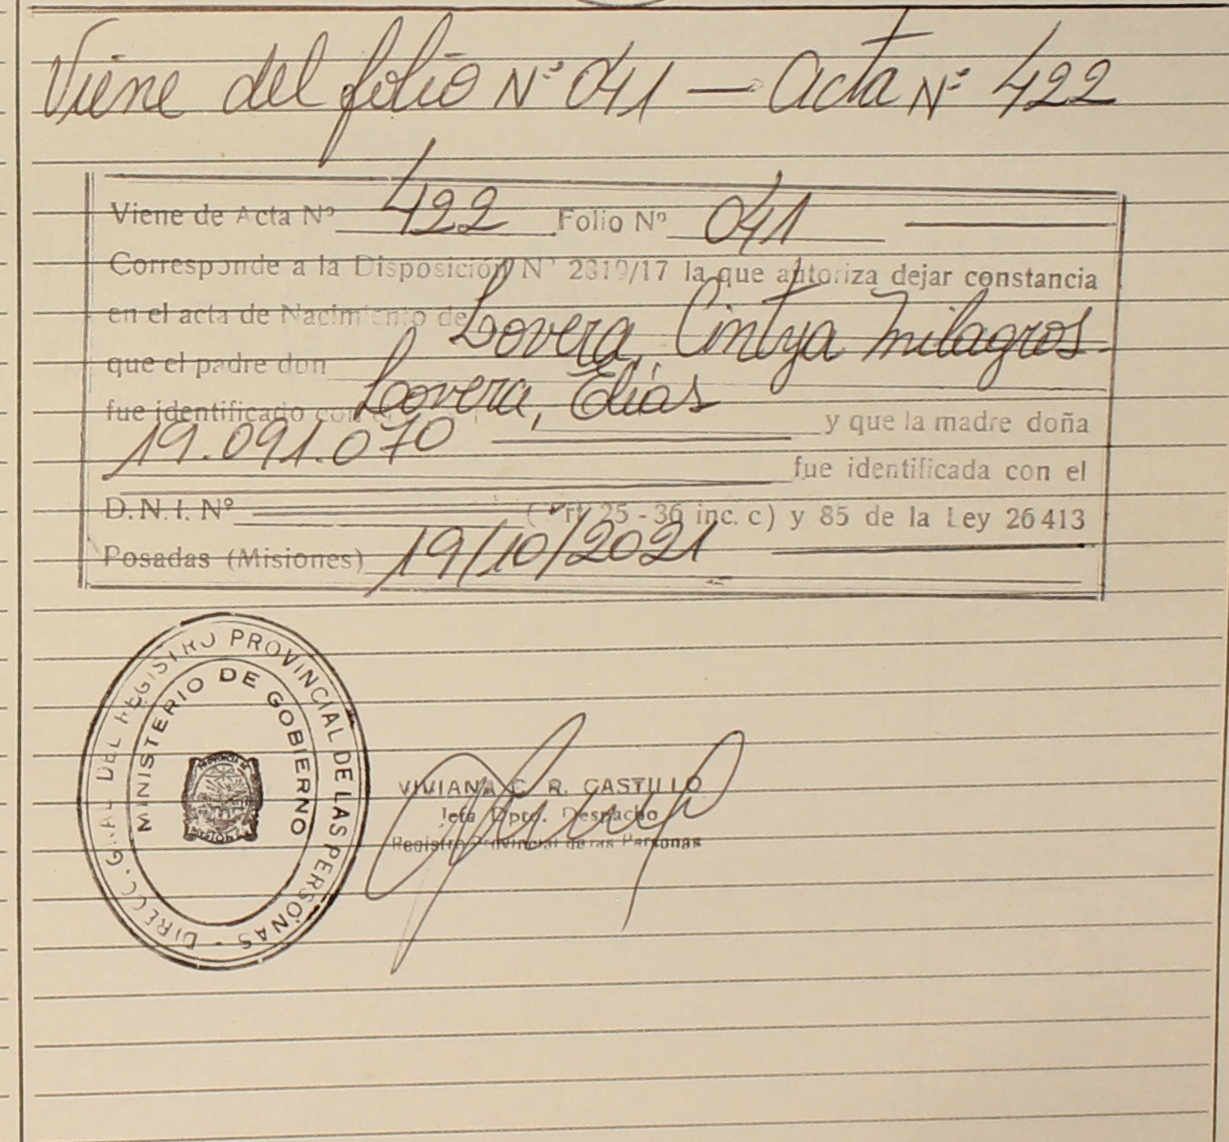 Viene del folio Nº 041 — Acta Nº 422
Viene de Acta Nº 422 Folio Nº 041
Corresponde a la Disposición Nº 2319/17 la que autoriza dejar constancia
en el acta de Nacimiento de Lovera, Cintya Milagros
que el padre don Lovera, Elías
fue identificado con el 19.091.070 y que la madre doña
fue identificada con el
D.N.I. Nº (Art 25 - 36 inc. c) y 85 de la Ley 26413
Posadas (Misiones) 19/10/2021
DIRECC. GRAL DEL REGISTRO PROVINCIAL DE LAS PERSONAS -
MINISTERIO DE GOBIERNO
PROVINCIA DE
MISIONES
VIVIANA C. R. CASTILLO
Jefa Dpto. Despacho
Registro Provincial de las Personas